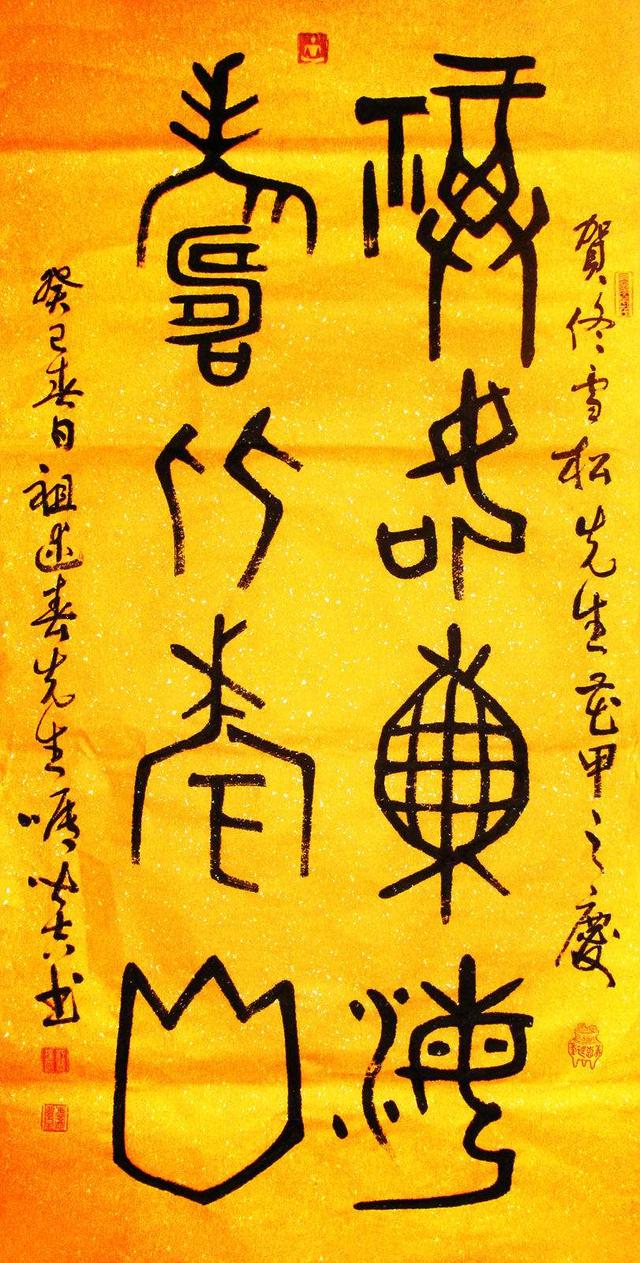 賀佟雪松先生花甲之慶
福如東海
壽比南山
癸巳春日祖述春先生嘱书